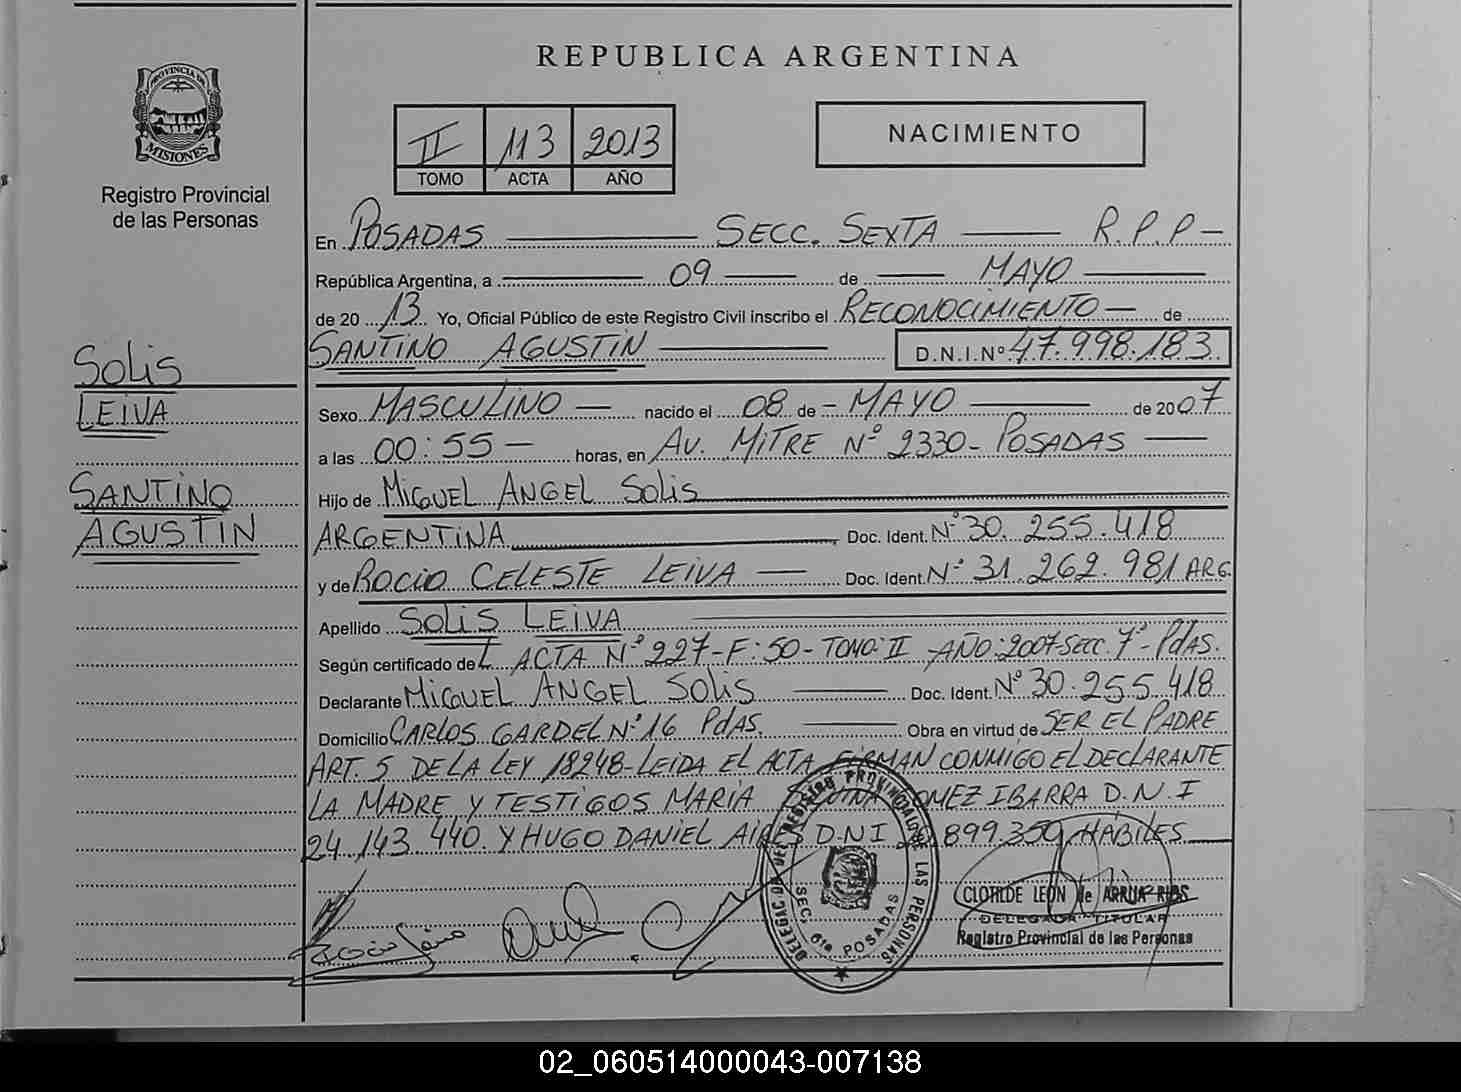 REPUBLICA ARGENTINA
PROVINCIA DE
MISIONES
Registro Provincial
de las Personas
II 113 2013
TOMO ACTA AÑO
NACIMIENTO
En POSADAS SECC. SEXTA R.P.P
República Argentina, a 09 de MAYO
de 20 13 Yo, Oficial Público de este Registro Civil inscribo el RECONOCIMIENTO de
SANTINO AGUSTIN D.N.I.Nº 47.998.183
Sexo MASCULINO nacido el 08 de MAYO de 2007
a las 00:55 horas, en AV. MITRE Nº 2330- POSADAS
Hijo de MIGUEL ANGEL SOLIS
ARGENTINA Doc. Ident. Nº 30.255.418
y de ROCIO CELESTE LEIVA Doc. Ident. Nº 31.262.981 ARG.
Apellido SOLIS LEIVA
Según certificado de L ACTA Nº 227-F:50-TOMO:II AÑO:2007-SECC.7ª-PdAS.
Declarante MIGUEL ANGEL SOLIS Doc. Ident. Nº 30.255.418
Domicilio CARLOS GARDEL Nº 16 PdAS. Obra en virtud de SER EL PADRE
ART. 5 DE LA LEY 18248-LEIDA EL ACTA FIRMAN CONMIGO EL DECLARANTE
LA MADRE Y TESTIGOS MARIA GOMEZ IBARRA D.N.I
24.143.440. Y HUGO DANIEL D.N.I 899.350 HABILES
SOLIS
LEIVA
SANTINO
AGUSTIN
DELEGACION DEL REGISTRO PROVINCIAL DE LAS PERSONAS
SEC. 6ta POSADAS
CLOTILDE LEON de ARRUA RIOS
DELEGADA TITULAR
Registro Provincial de las Personas
02_060514000043-007138